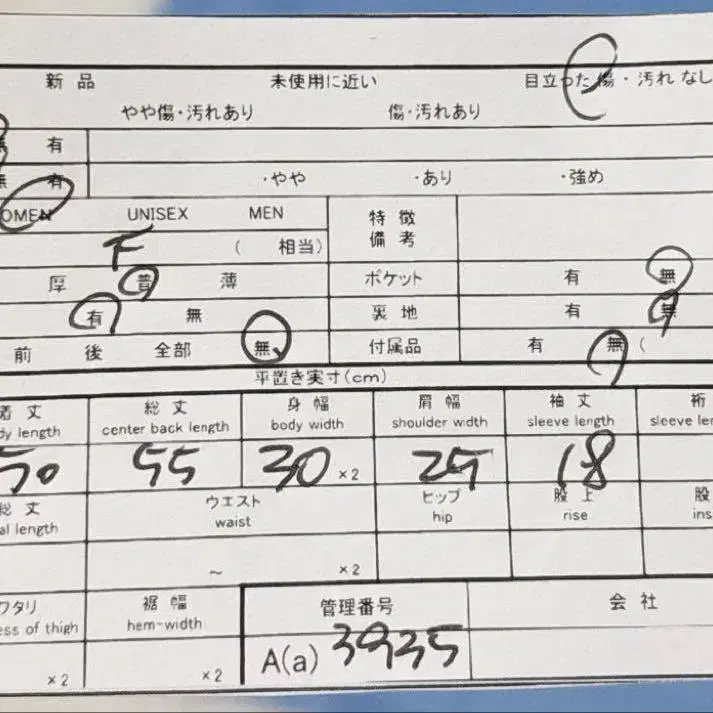 新品 未使用に近い 目立った傷・汚れなし
やや傷・汚れあり 傷・汚れあり
無 有
無 有 ・やや ・あり ・強め
OMEN UNISEX MEN 特徴
備考
F ( 相当)
厚 普 薄 ポケット 有 無
有 無 裏地 有 無
前 後 全部 無 付属品 有 無 (
平置き実寸(cm)
着丈 総丈 身幅 肩幅 袖丈 裄
dy length center back length body width shoulder wdth sleeve length sleeve le
50 55 30 ×2 25 18
総丈 ウエスト ヒップ 股上 股
al length waist hip rise ins
~ ×2
ワタリ 裾幅 管理番号 会社
ess of thigh hem-width
×2 ×2 A(a) 3935